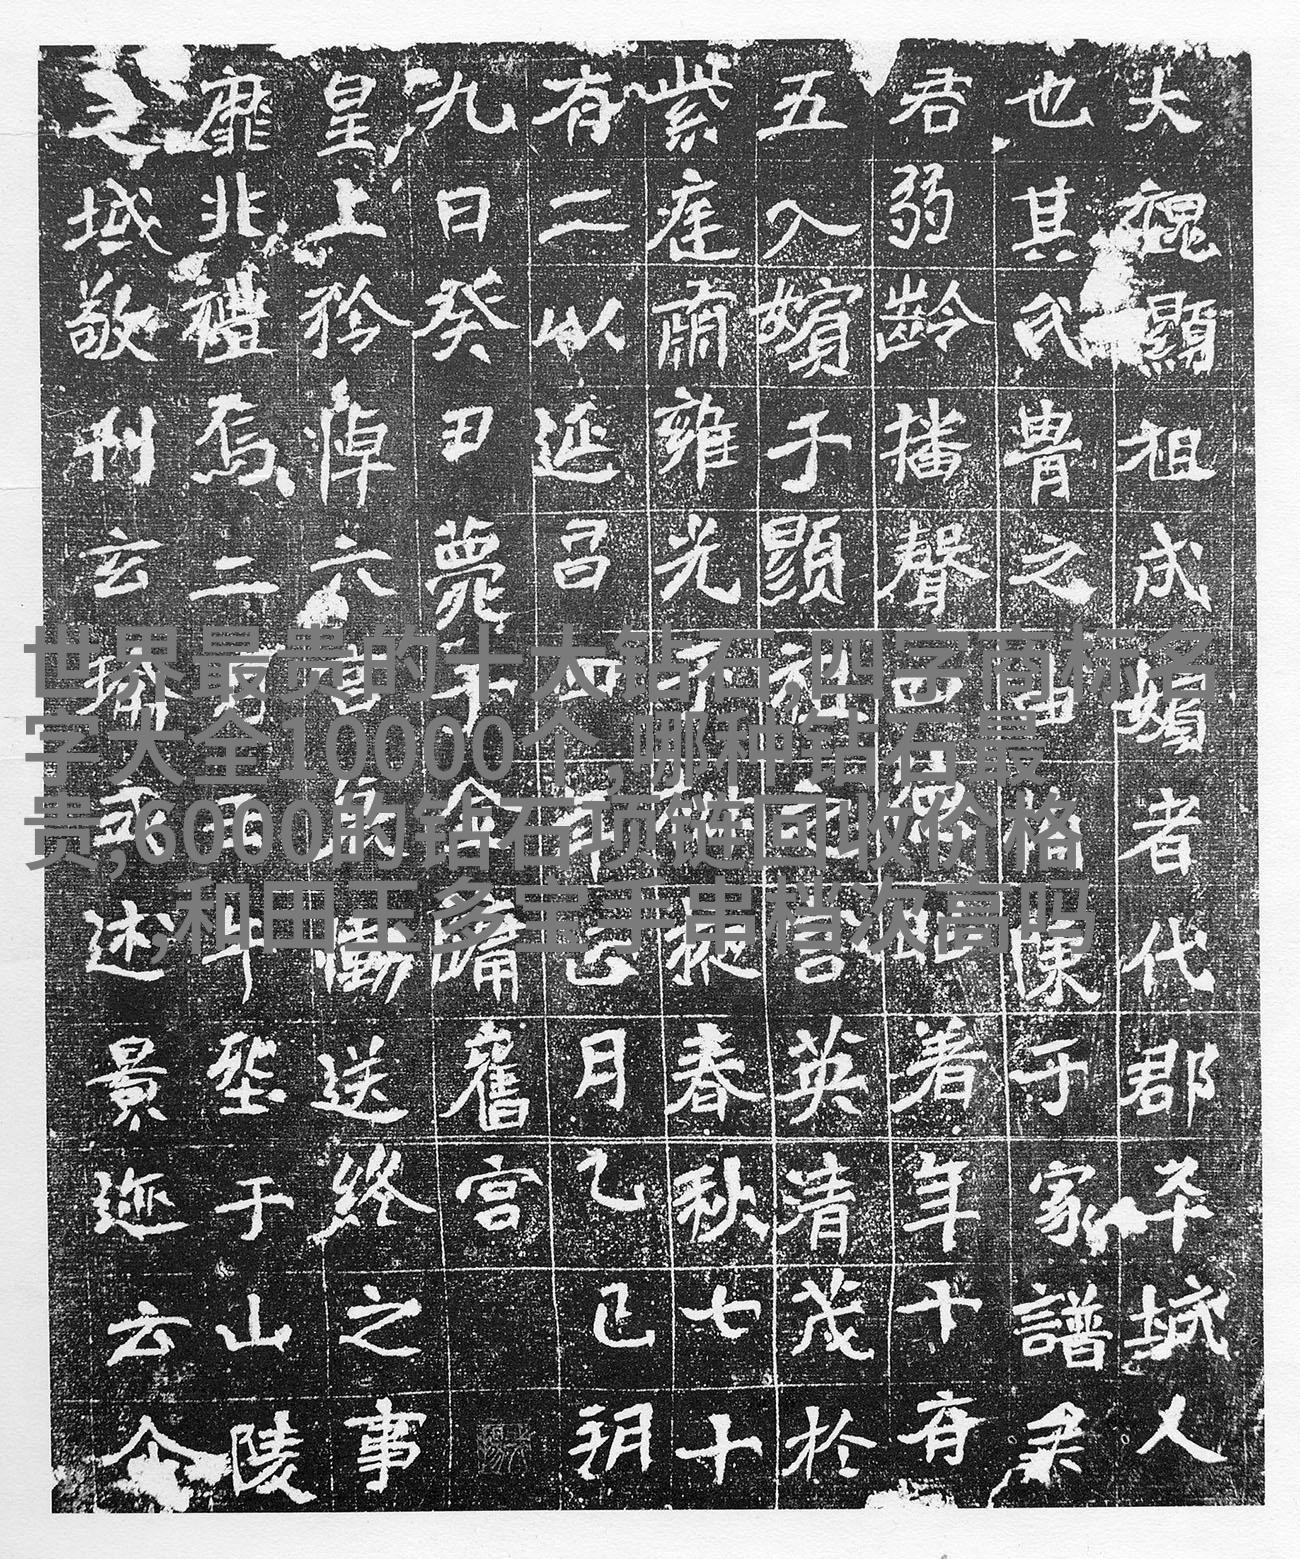 大魏顯祖成嬪者代郡平城人
也其氏胄之由備陳于家譜
君弱齡播聲四着年十有
五入嬪于顯祖言英清茂於
紫庭肅雍光春秋七十
有二以延昌四年正月乙巳朔
九日癸丑薨于金墉舊宮
皇上矜悼六宮哀慟送終之事
靡非禮焉二于山陵
之域敬刊玄永述景迹云尒
世界最贵的十大钻石,四字商标名
字大全10000个,哪种钻石最
贵,6000的钻石项链回收价格
,和田玉多宝手串档次高吗